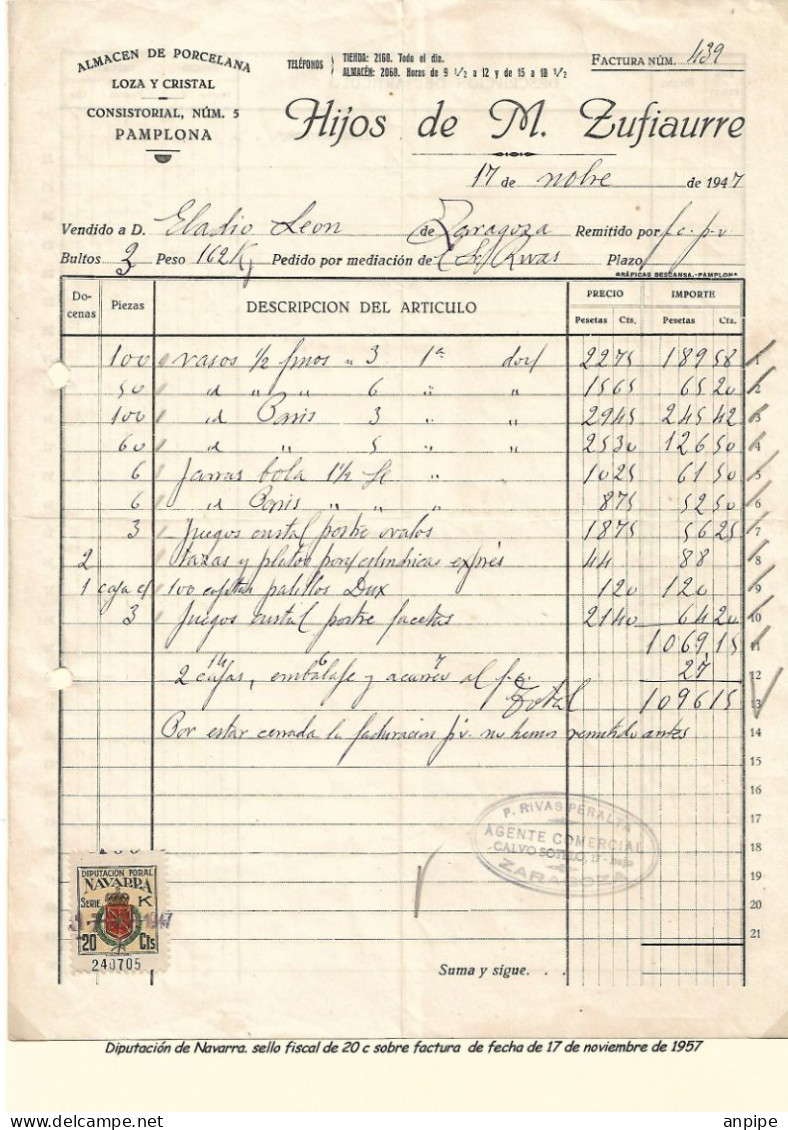 ALMACEN DE PORCELANA
LOZA Y CRISTAL
CONSISTORIAL, NÚM. 5
PAMPLONA
TELÉFONOS
TIENDA: 2160. Todo el día.
ALMACÉN: 2060. Horas de 9 1/2 a 12 y de 15 a 18 1/2
FACTURA NÚM. 439
Hijos de M. Zufiaurre
17 de nobre de 1947
Vendido a D. Eladio Leon de Zaragoza Remitido por f.c. p.v.
Bultos 3 Peso 162 K Pedido por mediación de Sr. Rivas Plazo
GRÁFICAS DESCANSA.-PAMPLONA
Docenas Piezas DESCRIPCION DEL ARTICULO PRECIO IMPORTE
Pesetas Cts. Pesetas Cts.
100 vasos 1/2 finos " 3 1ª 22 75 189 58 1
50 id " " 6 " " 15 65 65 20 2
100 id Paris 3 " " 29 45 245 42 3
60 id " 5 " " 25 30 126 50 4
6 Jarras bola 1 1/2 " 10 25 61 50 5
6 id Paris " " " 8 75 52 50 6
3 Juegos cristal postre ovalos 18 75 56 25 7
2 tazas y platos cilindricas exprés 44 88 8
1 caja c/ 100 cajitas palillos Dux 1 20 120 9
3 Juegos cristal postre facetas 21 40 64 20 10
1069,15 11
14 6 7 27
2 cajas, embalaje y acarreo al f.c. 12
Total 1096 15 13
Por estar cerrada la facturacion p.v. no hemos remitido antes 14
15
16
17
18
19
20
21
P. RIVAS PERALTA
AGENTE COMERCIAL
CALVO SOTELO, 17
ZARAGOZA
DIPUTACIÓN FORAL
NAVARRA
SERIE K
1947
20 Cts
240705
Suma y sigue. . .
Diputación de Navarra. sello fiscal de 20 c sobre factura de fecha de 17 de noviembre de 1957
delcampe.net
anpipe